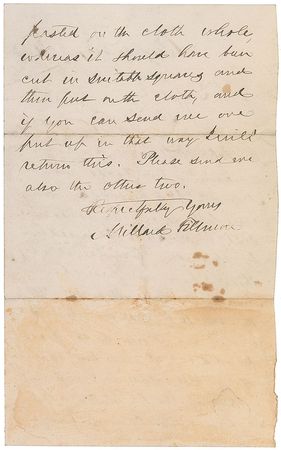 pasted on the cloth whole
whereas it should have been
cut in suitable squares and
then put on the cloth, and
if you can send me one
put up in that way I will
return this. Please send me
also the other two.
Respectfully Yours
Millard Fillmore